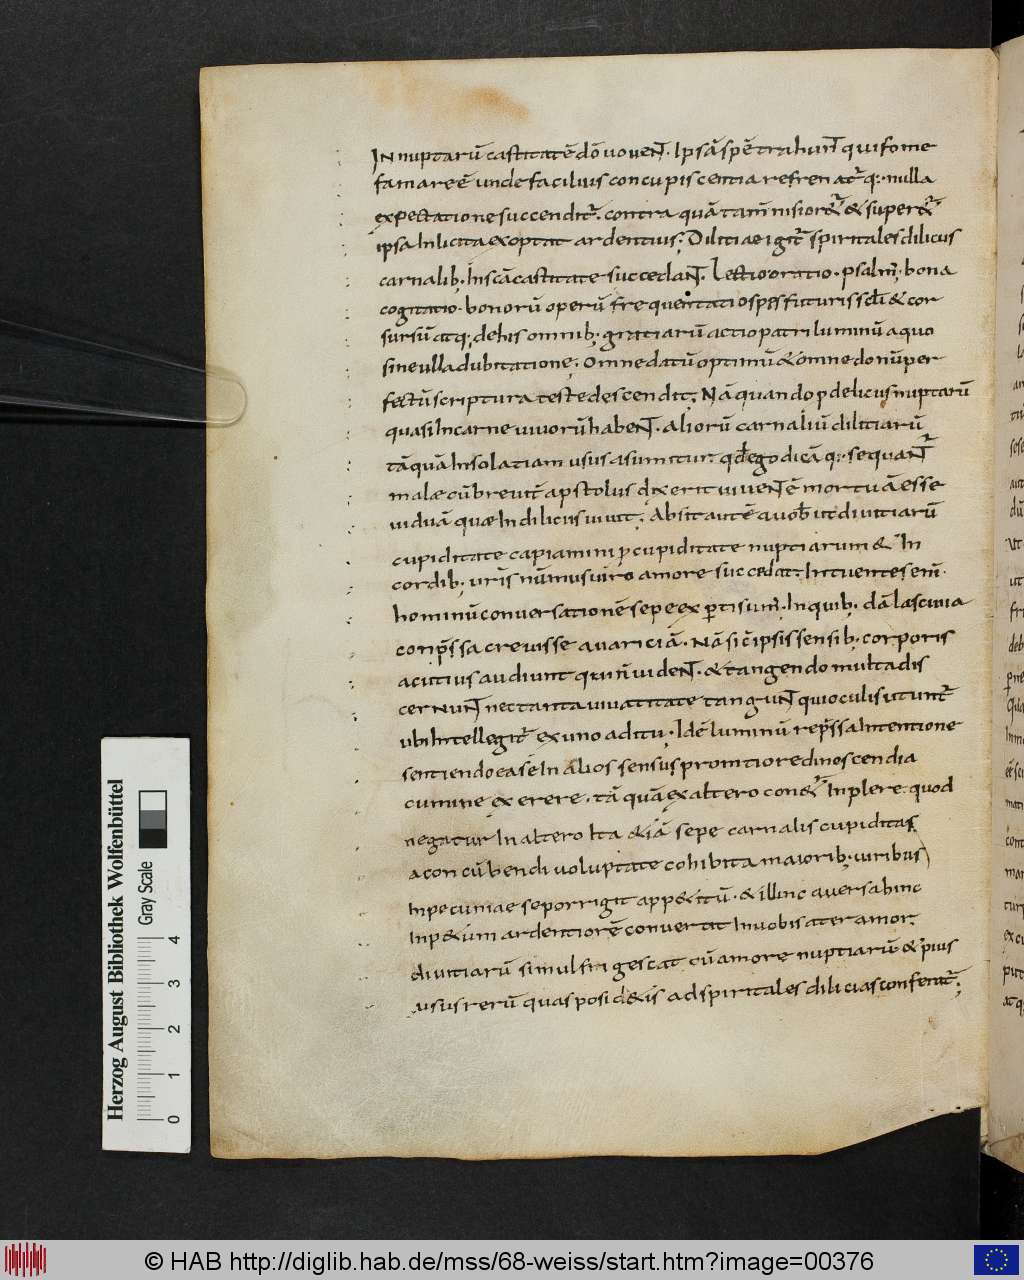 IN nuptarū castitatē dō vovenT. Ipsā spē trahunT qui fome
famareē unde facilius concupiscentia refrenatr̄ q: nulla
expectatione succenditr̄. contra quā tam nisi or&r̄ & super&r̄
ipsa Inlicita exoptat ardentius; Dilitiae igitr̄ spiritales dilicus
carnalib; Inscā castitate succedanT. Lectio oratio. psalm̄. bona
cogitatio. bonorū operū frequentatio spes futuri sscli & cor
sursū atq; dehis omnib; gratiarū actio patri luminū a quo
sine ulla dubitatione; Omne datū optimū & omne donū per
fectū scriptura teste descendit; Nā quando p delicus nuptarū
quasi Incarne vivorū habenT. aliorū carnaliū dilitiarū
tāquā Insolatiam usus asumitur. qd ego dicā q: sequanTr̄
malae cū brevit̄ apstolus dixerit vivenTē mortuā esse
viduā quae In dilicus vivit; Absit autē a vob ut divitiarū
cupiditate capiamini p cupiditate nuptiarum & In
cordib; vris nūmus viro amore succedat; Intuentes eni.
hominū conversationē sepe expti sum̄. Inquib; dā lascivia
conpssa crevisse avariciā. Nā sic ipsis sensib; corporis
acutius audiunt qui n̄ videnT. & tangendo multa dis
cerNunT nec tanta vivatitate tangunT qui oculis utuntr̄
ubi Intellegitr̄ ex uno aditu. Idē luminū repssa Intentione
sentiendo ease In alios sensus promtiore dinoscendia
cumine exerere. tā quā ex altero con&r̄ Inplere quod
negatur In altero Ita & iā sepe carnalis cupiditas
a concūbendi voluptate cohibita maiorib; viribus
Inpecuniae se porrigit app&itū. & illinc aversa hinc
Inp&um ardentiorē convertat In vobis ater amor
divitiarū simul frigescat cū amore nuptiarū & pius
usus rerū quas posid&is ad spiritales dilicias conferatr̄;
Herzog August Bibliothek Wolfenbüttel
Gray Scale
0 1 2 3 4
© HAB http://diglib.hab.de/mss/68-weiss/start.htm?image=00376